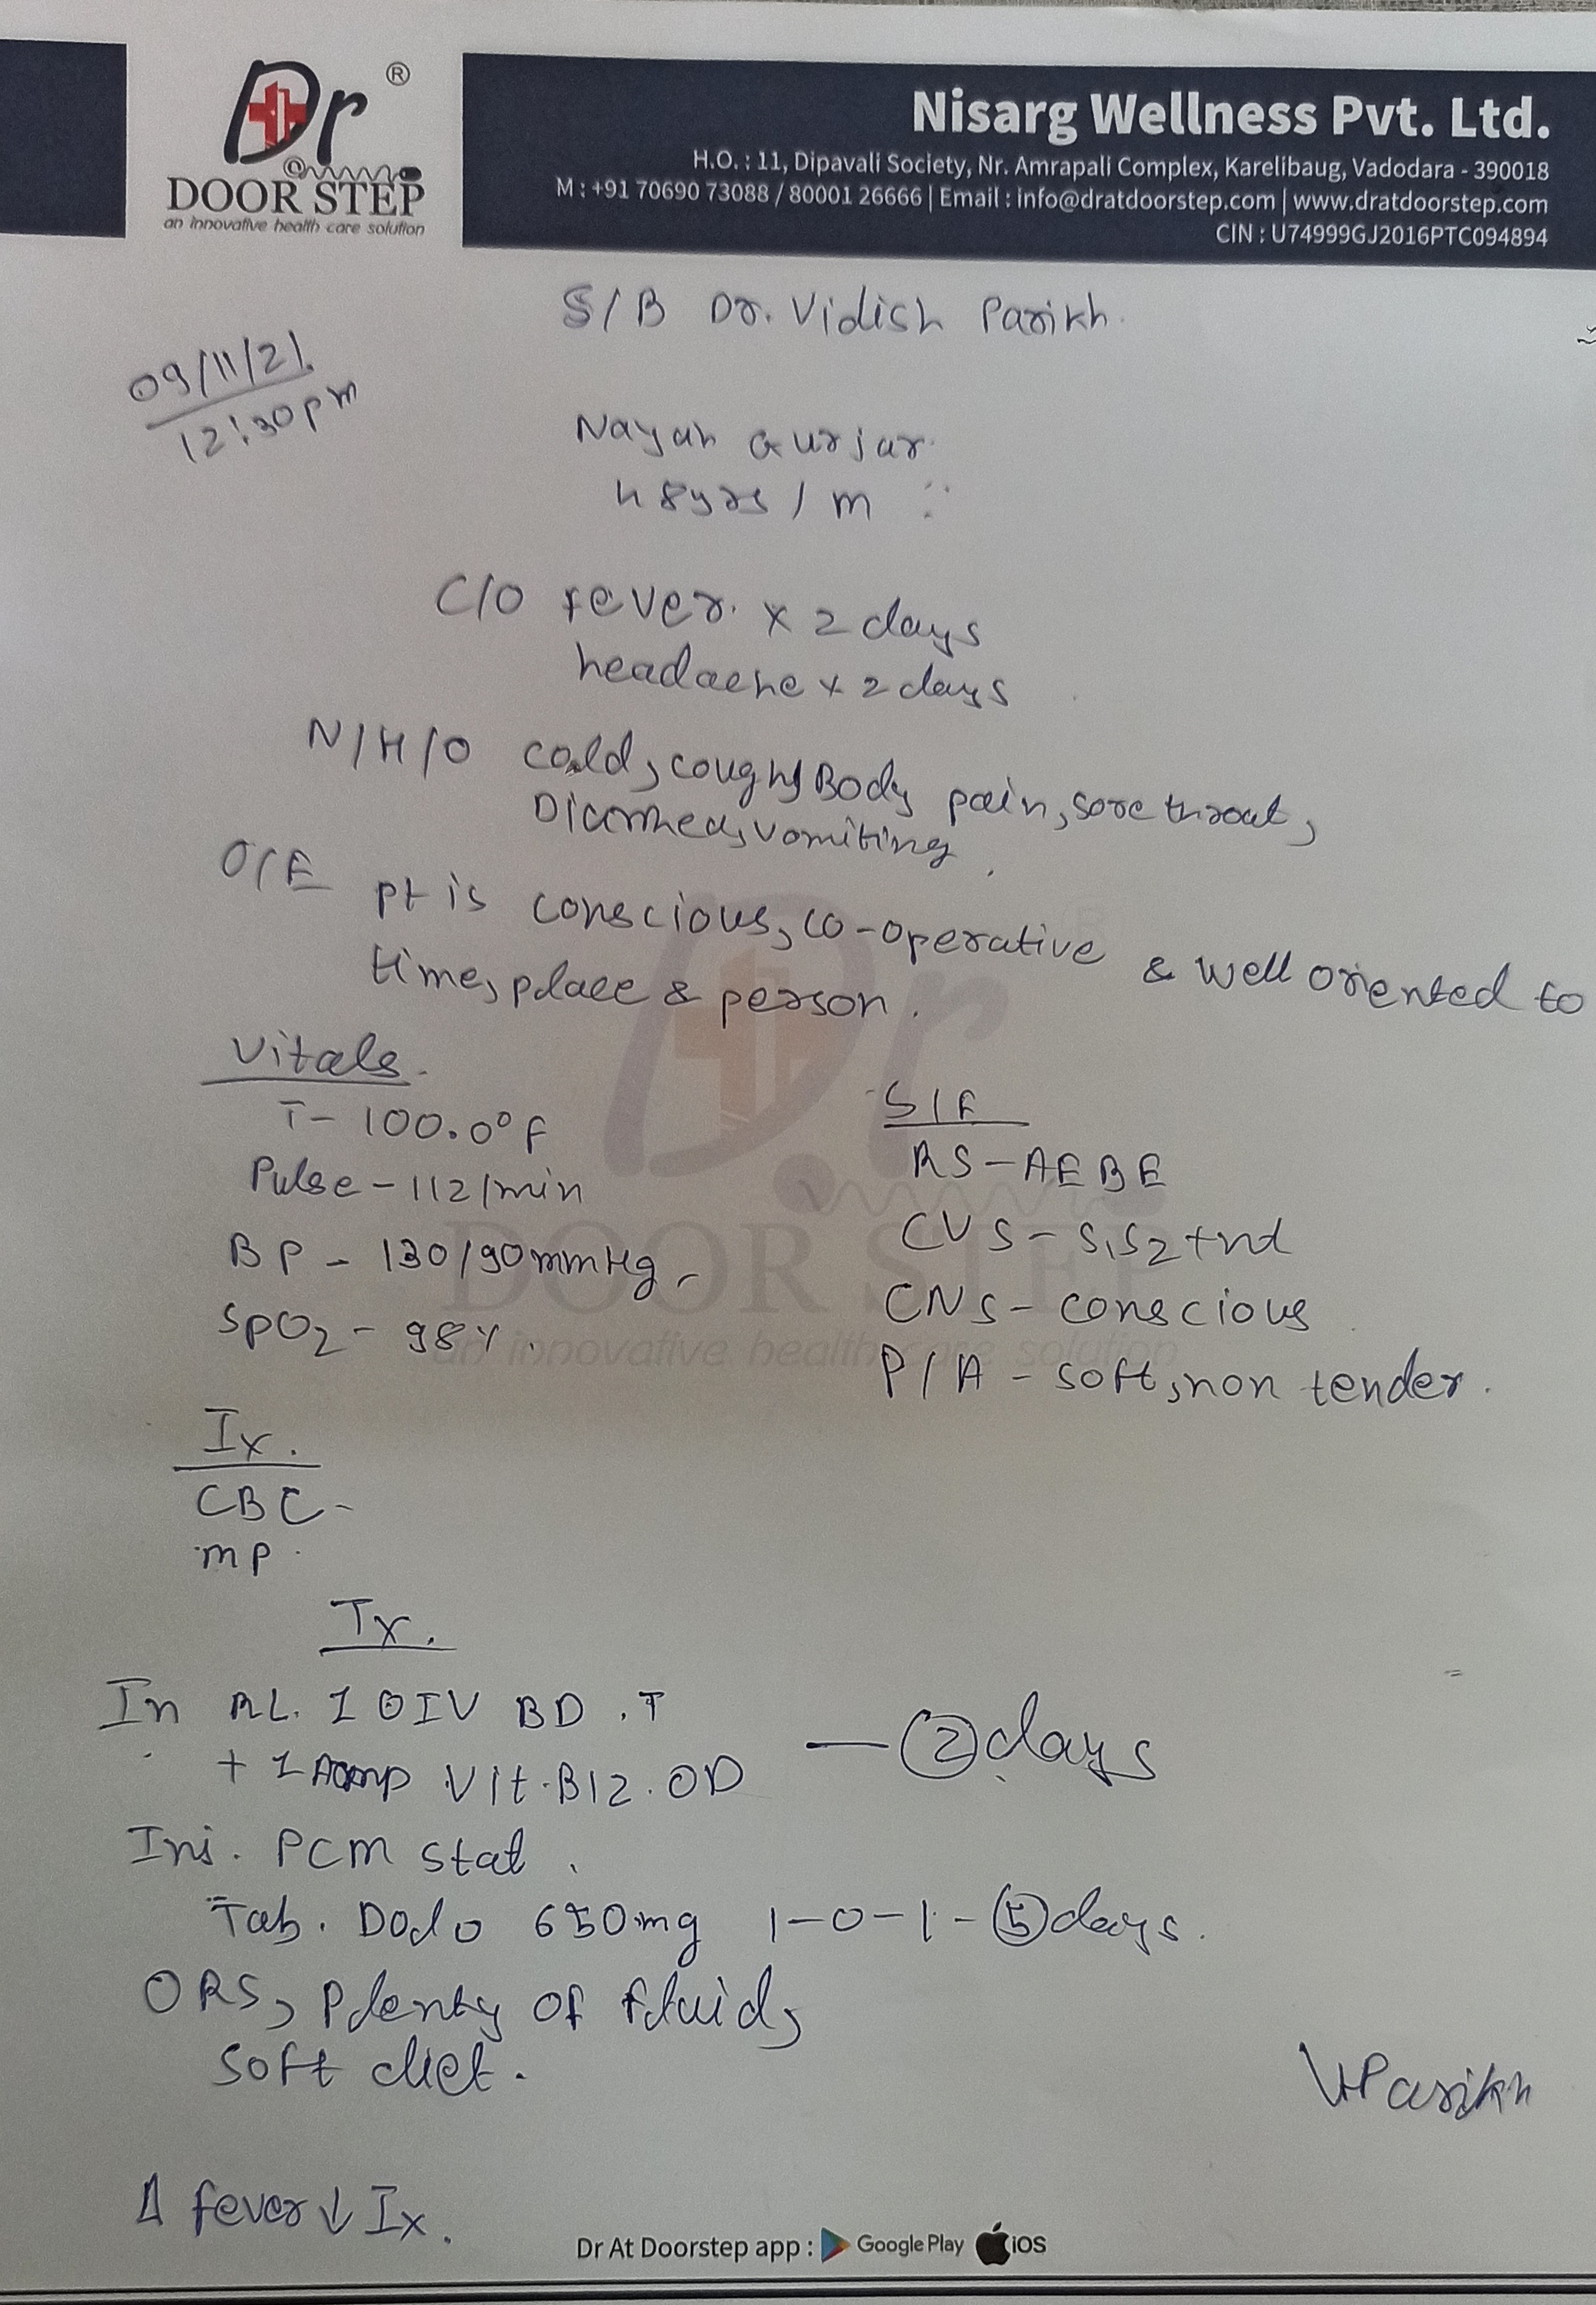 Dr ®
DOOR STEP
an innovative health care solution
Nisarg Wellness Pvt. Ltd.
H.O. : 11, Dipavali Society, Nr. Amrapali Complex, Karelibaug, Vadodara - 390018
M : +91 70690 73088 / 80001 26666 | Email : info@dratdoorstep.com | www.dratdoorstep.com
CIN : U74999GJ2016PTC094894
S/B Dr. Vidish Parikh.
09/11/21.
12:30pm
Nayan Gurjar.
48yrs / m
C/O fever. x 2 days
headache x 2 days
N/H/O cold, cough, Body pain, sore throat,
Diarrhea, vomiting.
O/E pt is conscious, co-operative & well oriented to
time, place & person.
Vitals.
T- 100.0°F
Pulse - 112/min
BP - 130/90mmHg
SpO2 - 98%.
S/E
RS - AEBE
CVS - S1S2+nd
CNS - conscious
P/A - soft, non tender.
Dr
DOOR STEP
an innovative health care solution
Ix.
CBC -
mp.
Tx.
In RL. 1 IV BD.
+ 1 Amp Vit.B12. OD — 2 days
Inj. PCM stat.
Tab. Dolo 650mg 1-0-1 - 5 days.
ORS, Plenty of fluid,
soft diet.
Parikh
Δ fever ↓ Ix.
Dr At Doorstep app : Google Play iOS